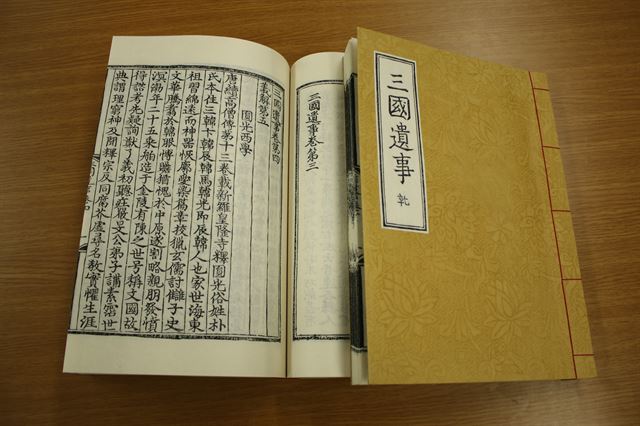 三國遺事 乹
三國遺事卷第三
三國遺事卷第四
義解第五
圓光西學
唐續高僧傳第十三卷載新羅皇隆寺釋圓光俗姓朴
氏本住三韓卞韓辰韓馬韓光即辰韓人也家世海東
祖習綿遠而神器恢廓愛染篇章校獵玄儒討讎子史
文華騰翥於韓服博贍猶愧於中原遂割略親朋發憤
溟渤年二十五乘舶造于金陵有陳之世号稱文國故
得諮考先疑詢猷了義初聽莊嚴旻公弟子講素霑世
典謂理窮神及聞釋宗反同腐芥虛尋名教實懼生涯